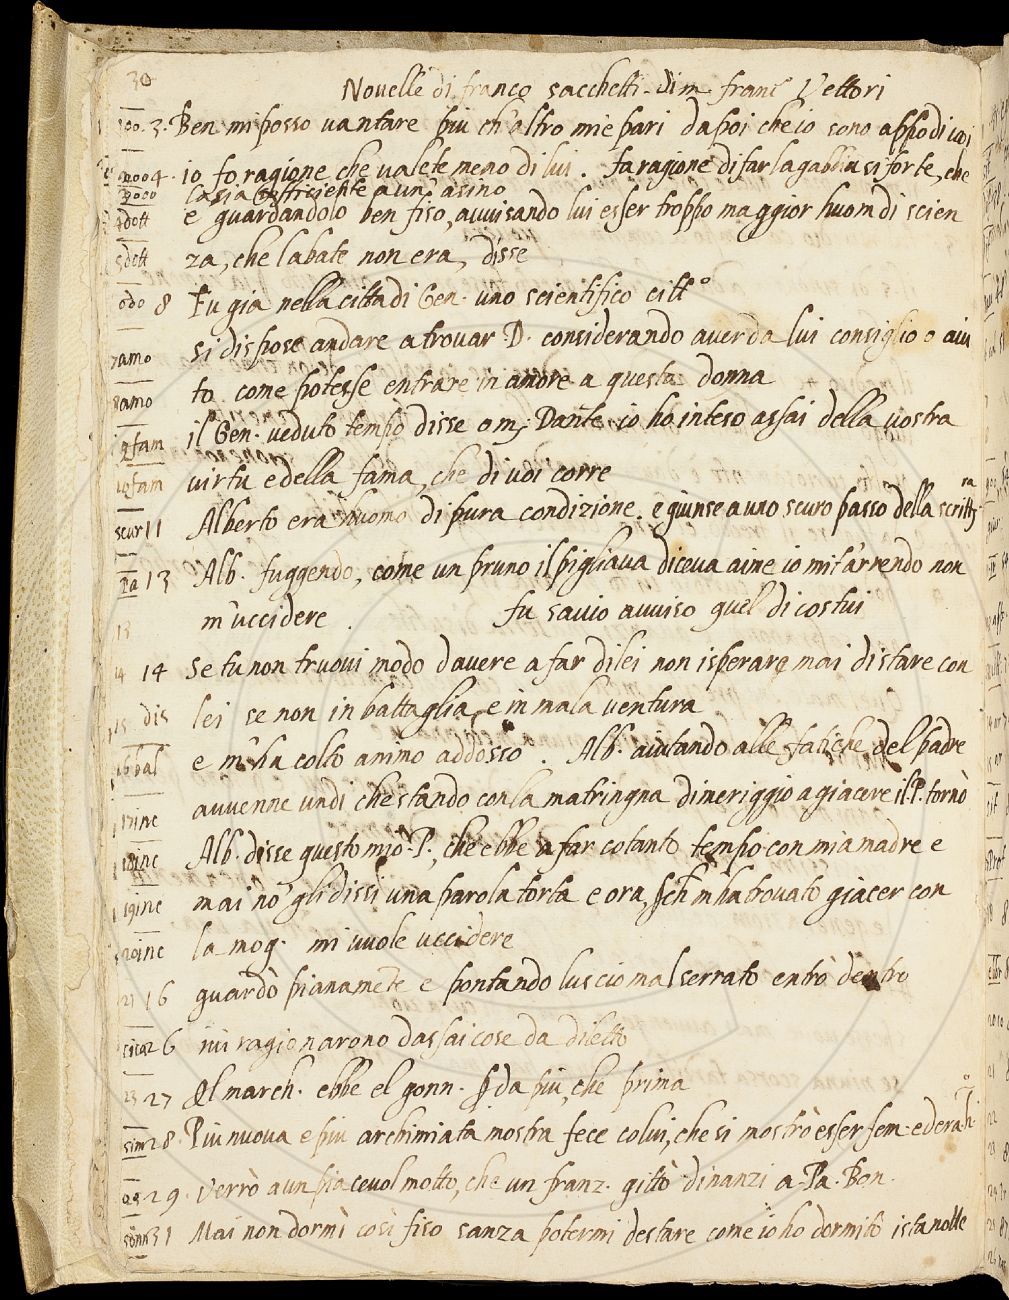 30
Novelle di franco sacchetti. di m. franc Vettori
3. Ben mi posso vantare piu ch'altro mie pari dapoi che io sono appo di voi
4. io fo ragione che valete meno di lui. fa ragione di far la gabbia si forte, che
la sia sofficiente a un asino
e guardandolo ben fiso, avvisando lui esser troppo maggior huom di scien
za, che labate non era, disse
8 Fu gia nella citta di Gen. uno scientifico citt.º
si dispose andare a trovar .D. considerando aver da lui consiglio o aiu
to come potesse entrare in amore a questa donna
il Gen. veduto tempo disse o m; Dante io ho inteso assai della vostra
virtu e della fama, che di voi corre
scur 11 Alberto era huomo di pura condizione. e giunse a uno scuro passo della scritt.ra
13 Alb. fuggendo, come un pruno il pigliava diceva aine io mit'arrendo non
m'uccidere . fu savio avviso quel di costui
14 14 Se tu non truovi modo d'avere a far di lei non isperare mai di stare con
15 dis lei se non in battaglia, e in mala ventura
16 bal e m'ha colto animo addosso . Alb. aiutando alle fatiche del padre
17 inc avvenne un di che stando con la matringna di meriggio a giacere il .P. tornò
18 inc Alb. disse questo mio .P., che ebbe a far cotanto tempo con mia madre e
19 inc mai nõ gli dissi una parola torta e ora, ꝑch m'ha trovato giacer con
20 inc la mog. mi vuole uccidere
21 16 guardò pianamẽte e pontando luscio mal serrato entrò dentro
26 ivi ragionarono d'assai cose da diletto
23 27 Il march. ebbe el gonn. ꝑ da piu, che prima
sim 28. Piu nuova e piu archimiata mostra fece colui, che si mostrò esser fem. ed era h.º
29. Verrò a un piacevol motto, che un franz. gittò dinanzi a .Pa. Bon.
sonn 31 Mai non dormì così fiso sanza potermi destare come io ho dormito istanotte